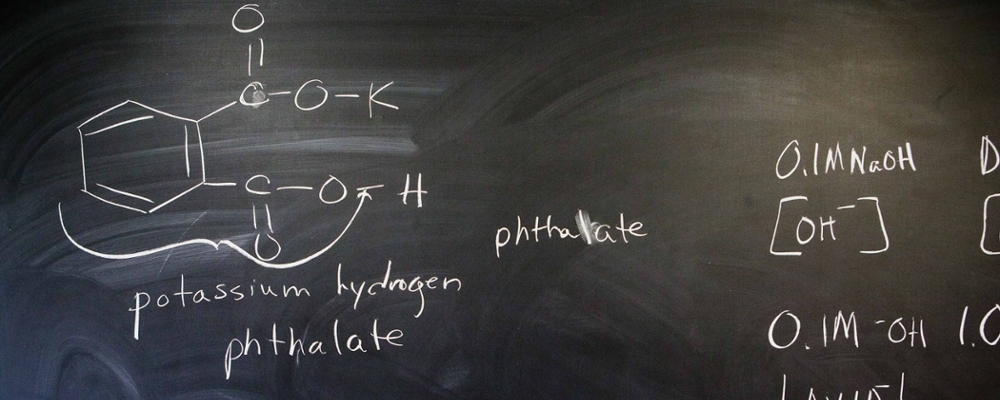 O
C - O - K
C - O - H
O
potassium hydrogen
phthalate
phthalate
0.1M NaOH
[OH⁻]
0.1M ⁻OH